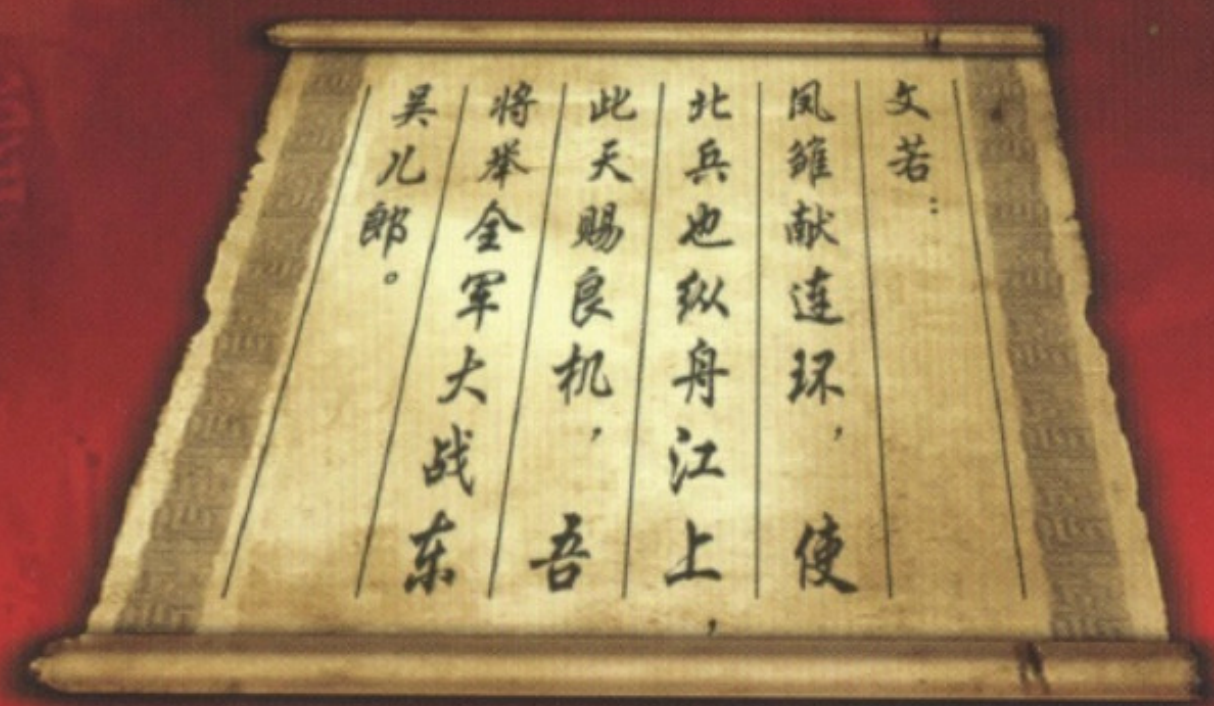 文若：
凤雏献连环，使
北兵也纵舟江上，
此天赐良机，吾
将举全军大战东
吴儿郎。